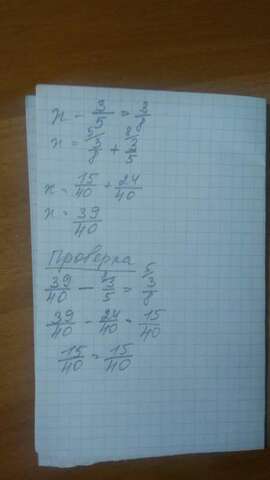 x - 3/5 = 3/8
x = 5 3/8 + 8 3/5
x = 15/40 + 24/40
x = 39/40
Проверка
39/40 - 8 3/5 = 5 3/8
39/40 - 24/40 = 15/40
15/40 = 15/40